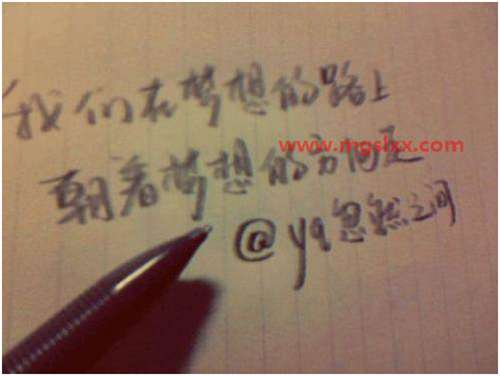 我们在梦想的路上
www.mgslxx.com
朝着梦想的方向
@yq忽然之间